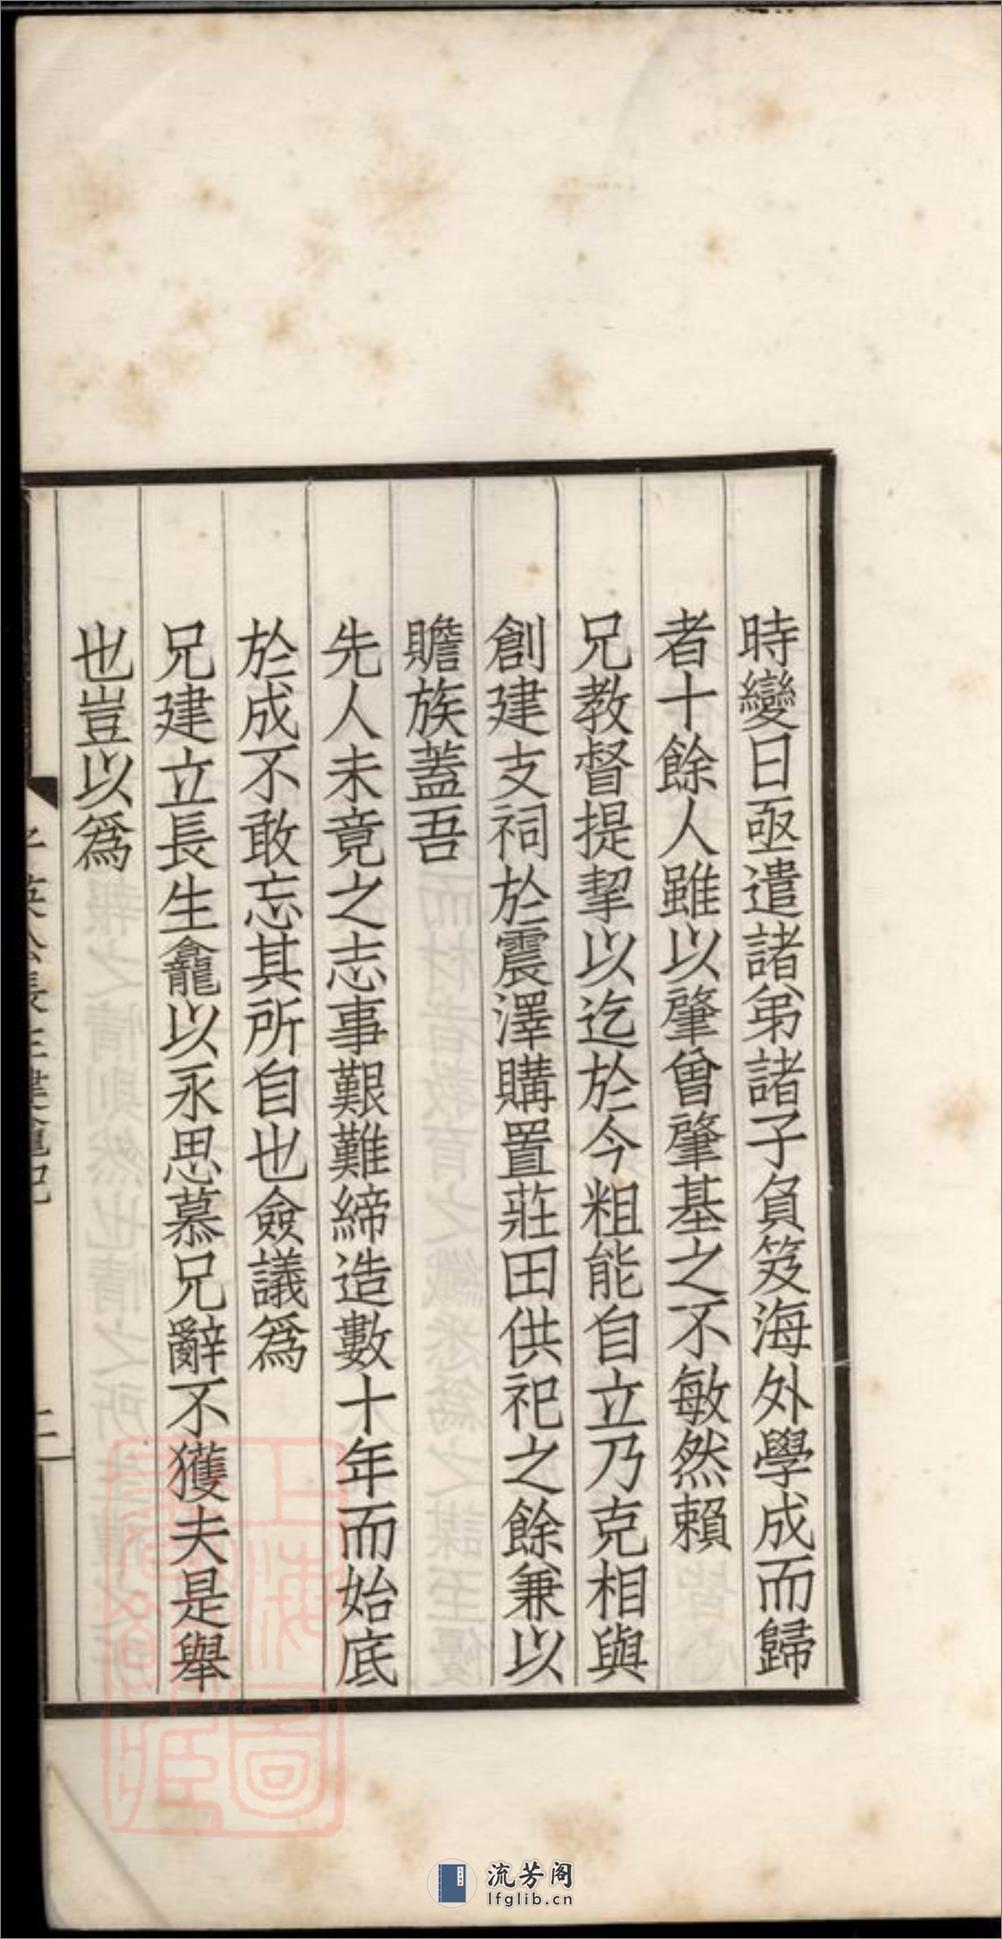 時變日亟遣諸弟諸子負笈海外學成而歸
者十餘人雖以肇曾肇基之不敏然賴
兄教督提挈以迄於今粗能自立乃克相與
創建支祠於震澤購置莊田供祀之餘兼以
贍族蓋吾
先人未竟之志事艱難締造數十年而始底
於成不敢忘其所自也僉議爲
兄建立長生龕以永思慕兄辭不獲夫是舉
也豈以爲
二
上海圖
流芳阁
lfglib.cn